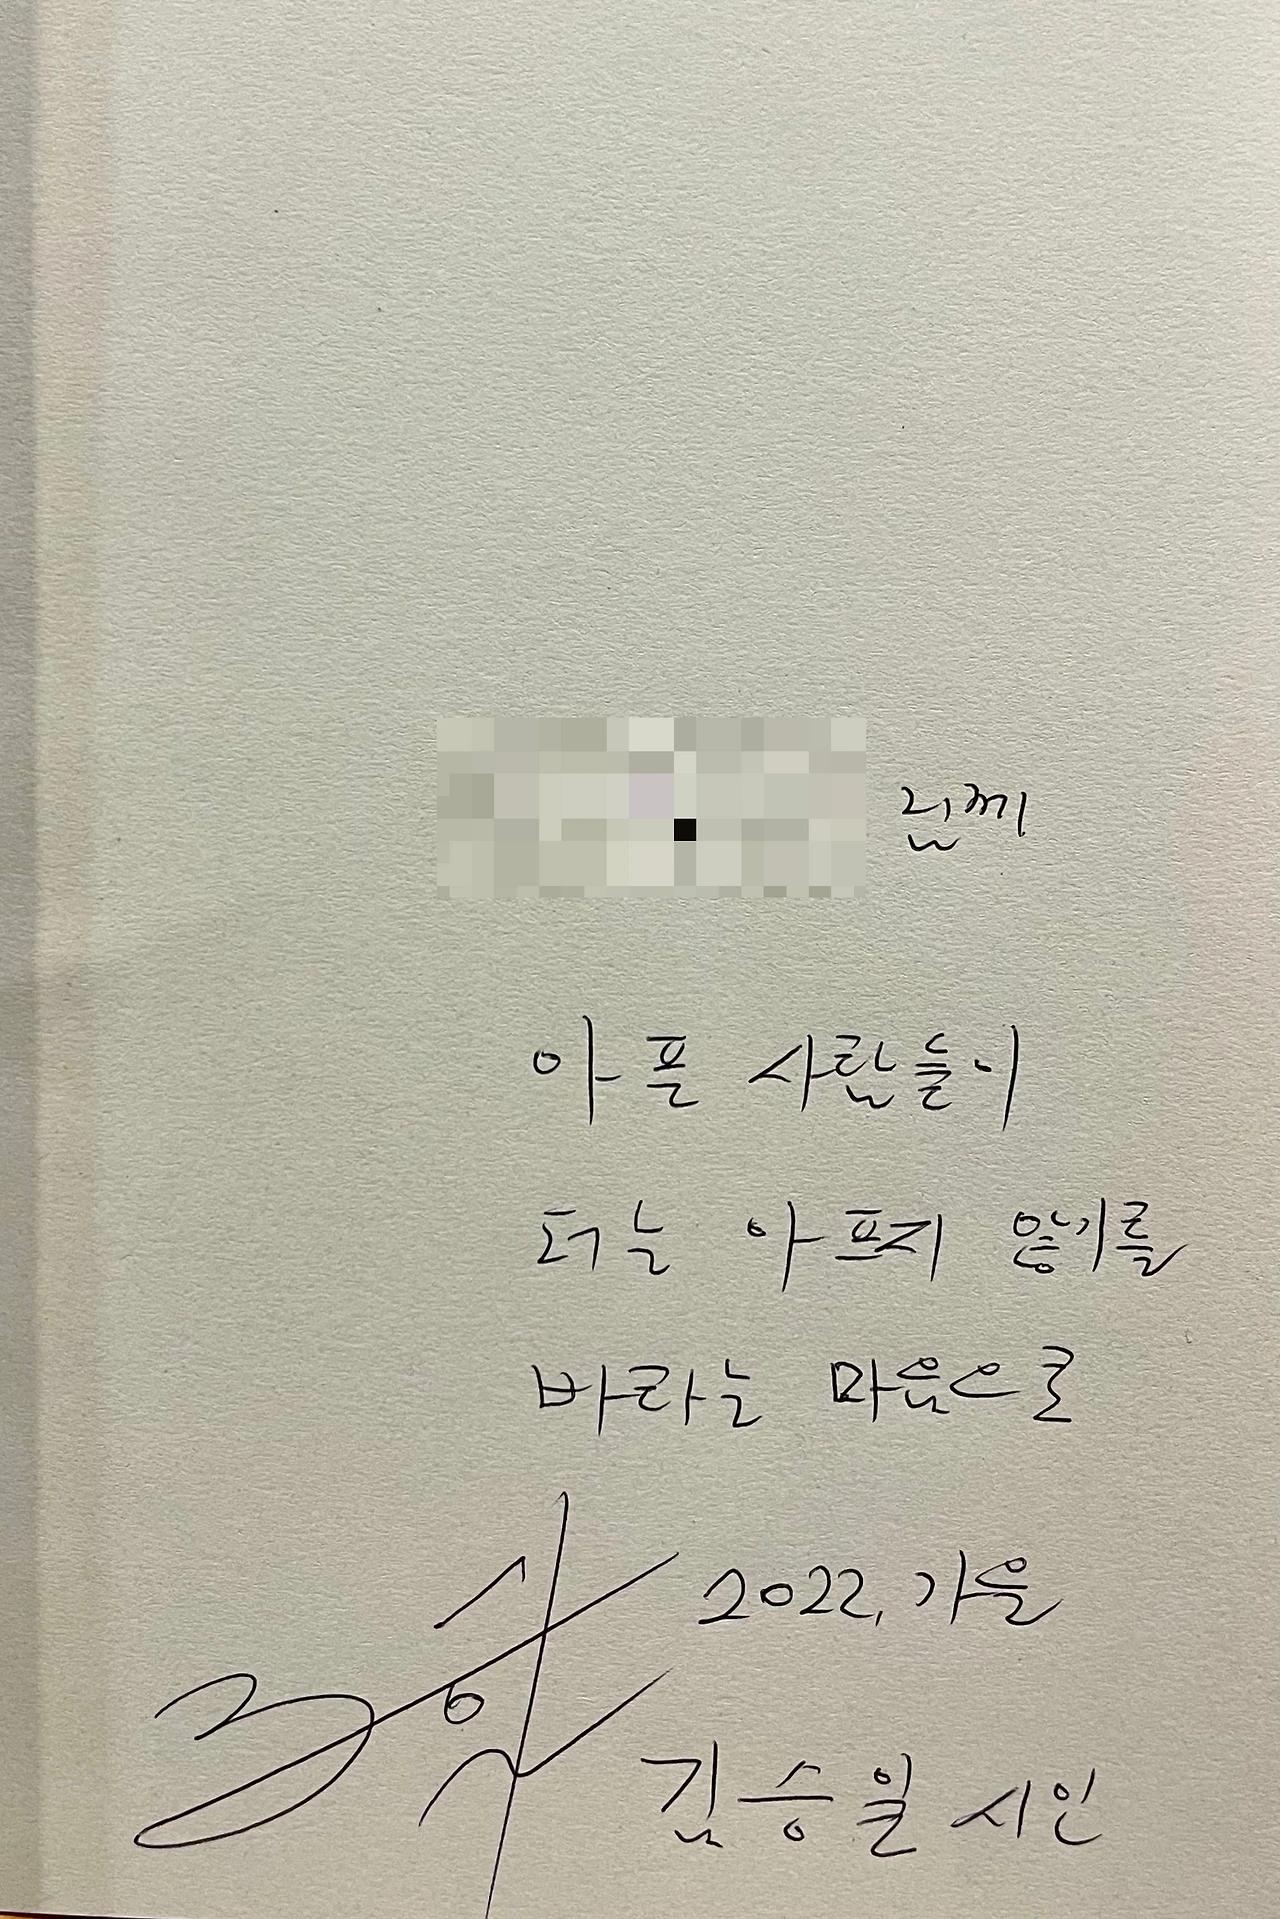 님께
아픈 사람들이
더는 아프지 않기를
바라는 마음으로
2022, 가을
김승일 시인